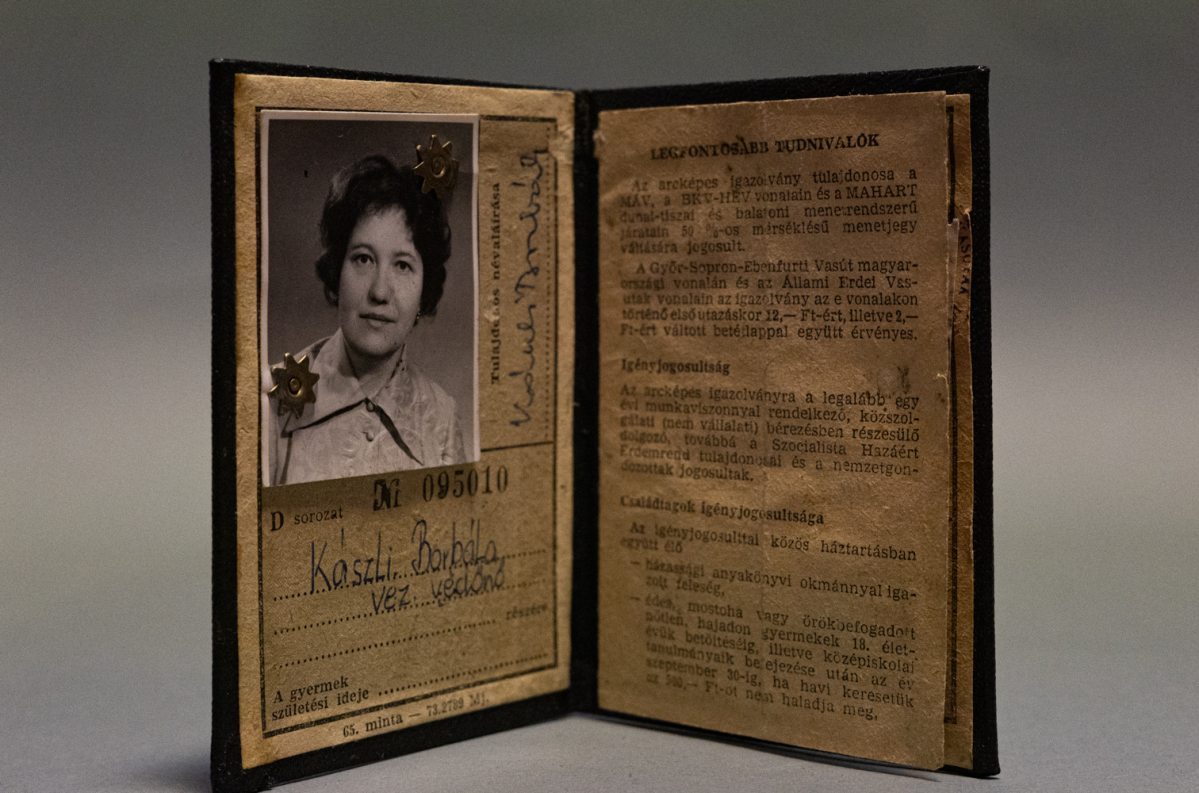 Tulajdonos névaláírása
D sorozat № 095010
Kászli Borbála
vez. védőnő
részére
A gyermek
születési ideje
65. minta — 73.2789 Mj.
LEGFONTOSABB TUDNIVALÓK
Az arcképes igazolvány tulajdonosa a
MÁV, a BKV-HÉV vonalain és a MAHART
dunai-tiszai és balatoni menetrendszerű
járatain 50 %-os mérséklésű menetjegy
váltására jogosult.
A Győr-Sopron-Ebenfurti Vasút magyar-
országi vonalán és az Állami Erdei Vas-
utak vonalain az igazolvány az e vonalakon
történő első utazáskor 12,— Ft-ért, illetve 2,—
Ft-ért váltott betétlappal együtt érvényes.
Igényjogosultság
Az arcképes igazolványra a legalább egy
évi munkaviszonnyal rendelkező, közszol-
gálati (nem vállalati) bérezésben részesülő
dolgozó, továbbá a Szocialista Hazáért
Érdemrend tulajdonosai és a nemzetgon-
dozottak jogosultak.
Családtagok igényjogosultsága
Az igényjogosulttal közös háztartásban
együtt élő
— házassági anyakönyvi okmánnyal iga-
zolt feleség,
— édes, mostoha vagy örökbefogadott
nőtlen, hajadon gyermekek 18. élet-
évük betöltéséig, illetve középiskolai
tanulmányaik befejezése után az év
szeptember 30-ig, ha havi keresetük
az 500,— Ft-ot nem haladja meg,